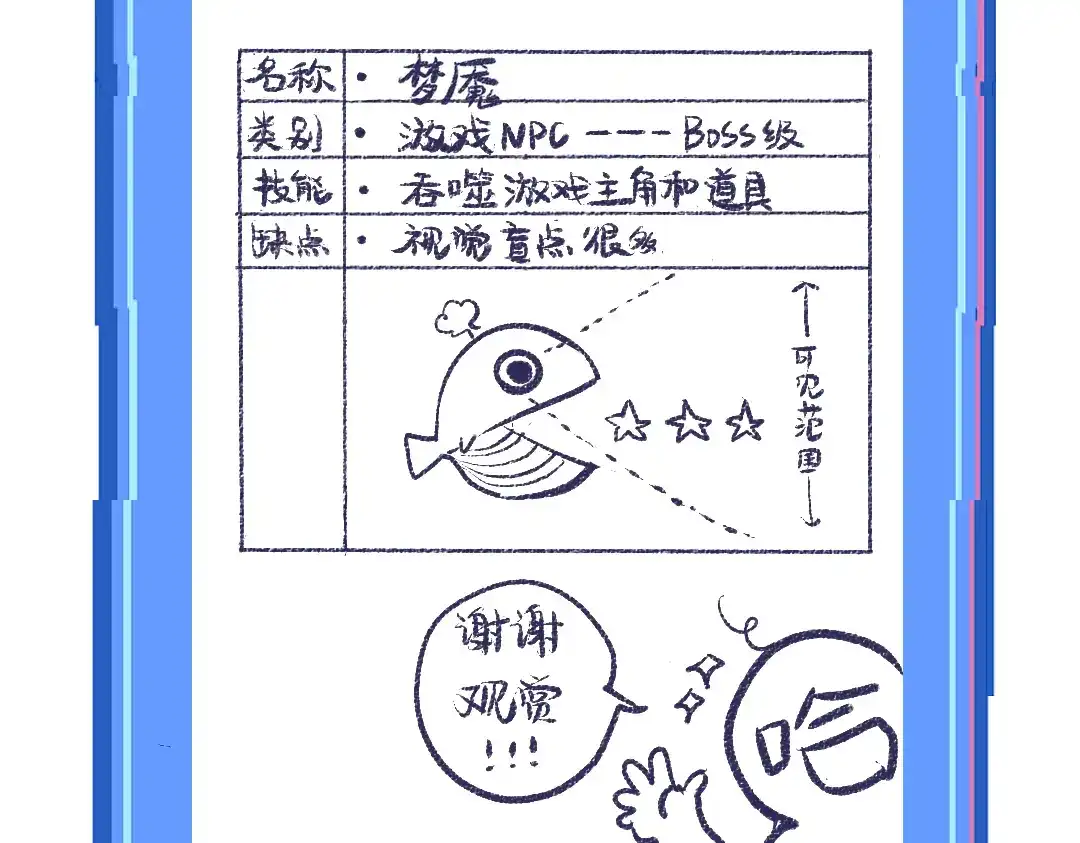 名称 · 梦魇
类别 · 游戏NPC ---- Boss级
技能 · 吞噬游戏主角和道具
缺点 · 视觉盲点很多
可见范围
谢谢
观赏
!!!
哈